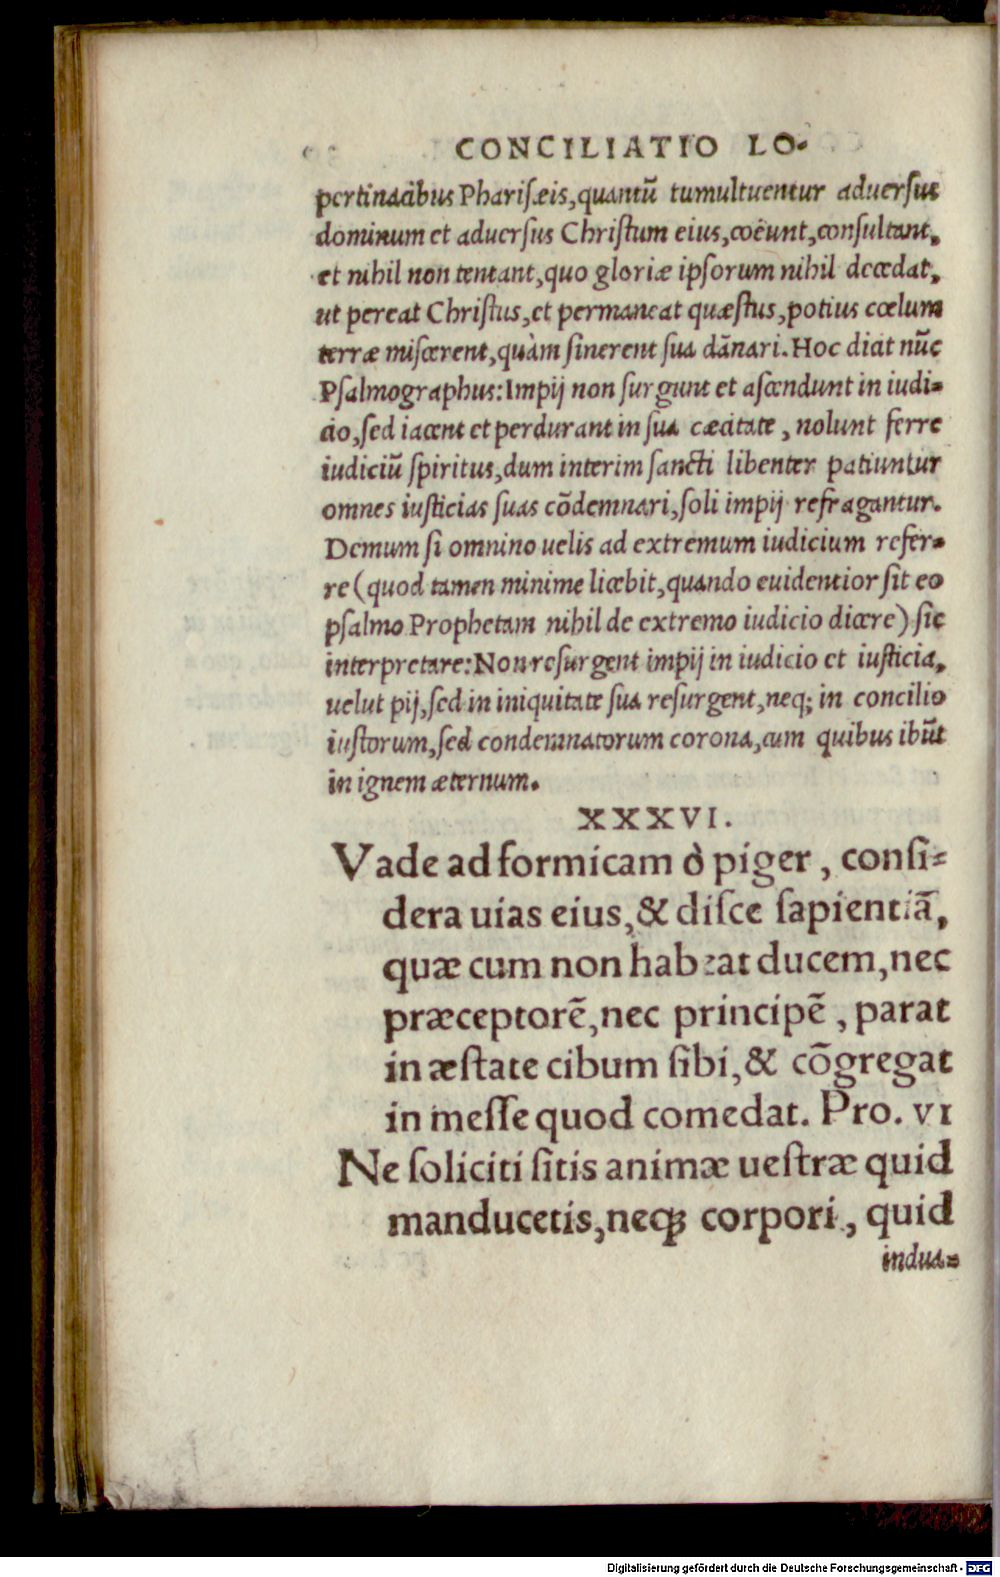 CONCILIATIO LO-
pertinacibus Pharisæis, quantū tumultuentur aduersus
dominum et aduersus Christum eius, coëunt, consultant,
et nihil non tentant, quo gloriæ ipsorum nihil decedat,
ut pereat Christus, et permaneat quæstus, potius cœlum
terræ miscerent, quàm sinerent sua dānari. Hoc dicit nūc
Psalmographus: Impij non surgunt et ascendunt in iudi-
cio, sed iacent et perdurant in sua cæcitate, nolunt ferre
iudiciū spiritus, dum interim sancti libenter patiuntur
omnes iusticias suas cōdemnari, soli impij refragantur.
Demum si omnino uelis ad extremum iudicium refer-
re (quod tamen minime licebit, quando euidentior sit eo
psalmo Prophetam nihil de extremo iudicio dicere) sic
interpretare: Non resurgent impij in iudicio et iusticia,
uelut pij, sed in iniquitate sua resurgent, neq; in concilio
iustorum, sed condemnatorum corona, cum quibus ibūt
in ignem æternum.
XXXVI.
Vade ad formicam ò piger, consi-
dera uias eius, & disce sapientiā,
quæ cum non habeat ducem, nec
præceptorē, nec principē, parat
in æstate cibum sibi, & cōgregat
in messe quod comedat. Pro. VI
Ne soliciti sitis animæ uestræ quid
manducetis, neqꝫ corpori, quid
indua-
Digitalisierung gefördert durch die Deutsche Forschungsgemeinschaft - DFG